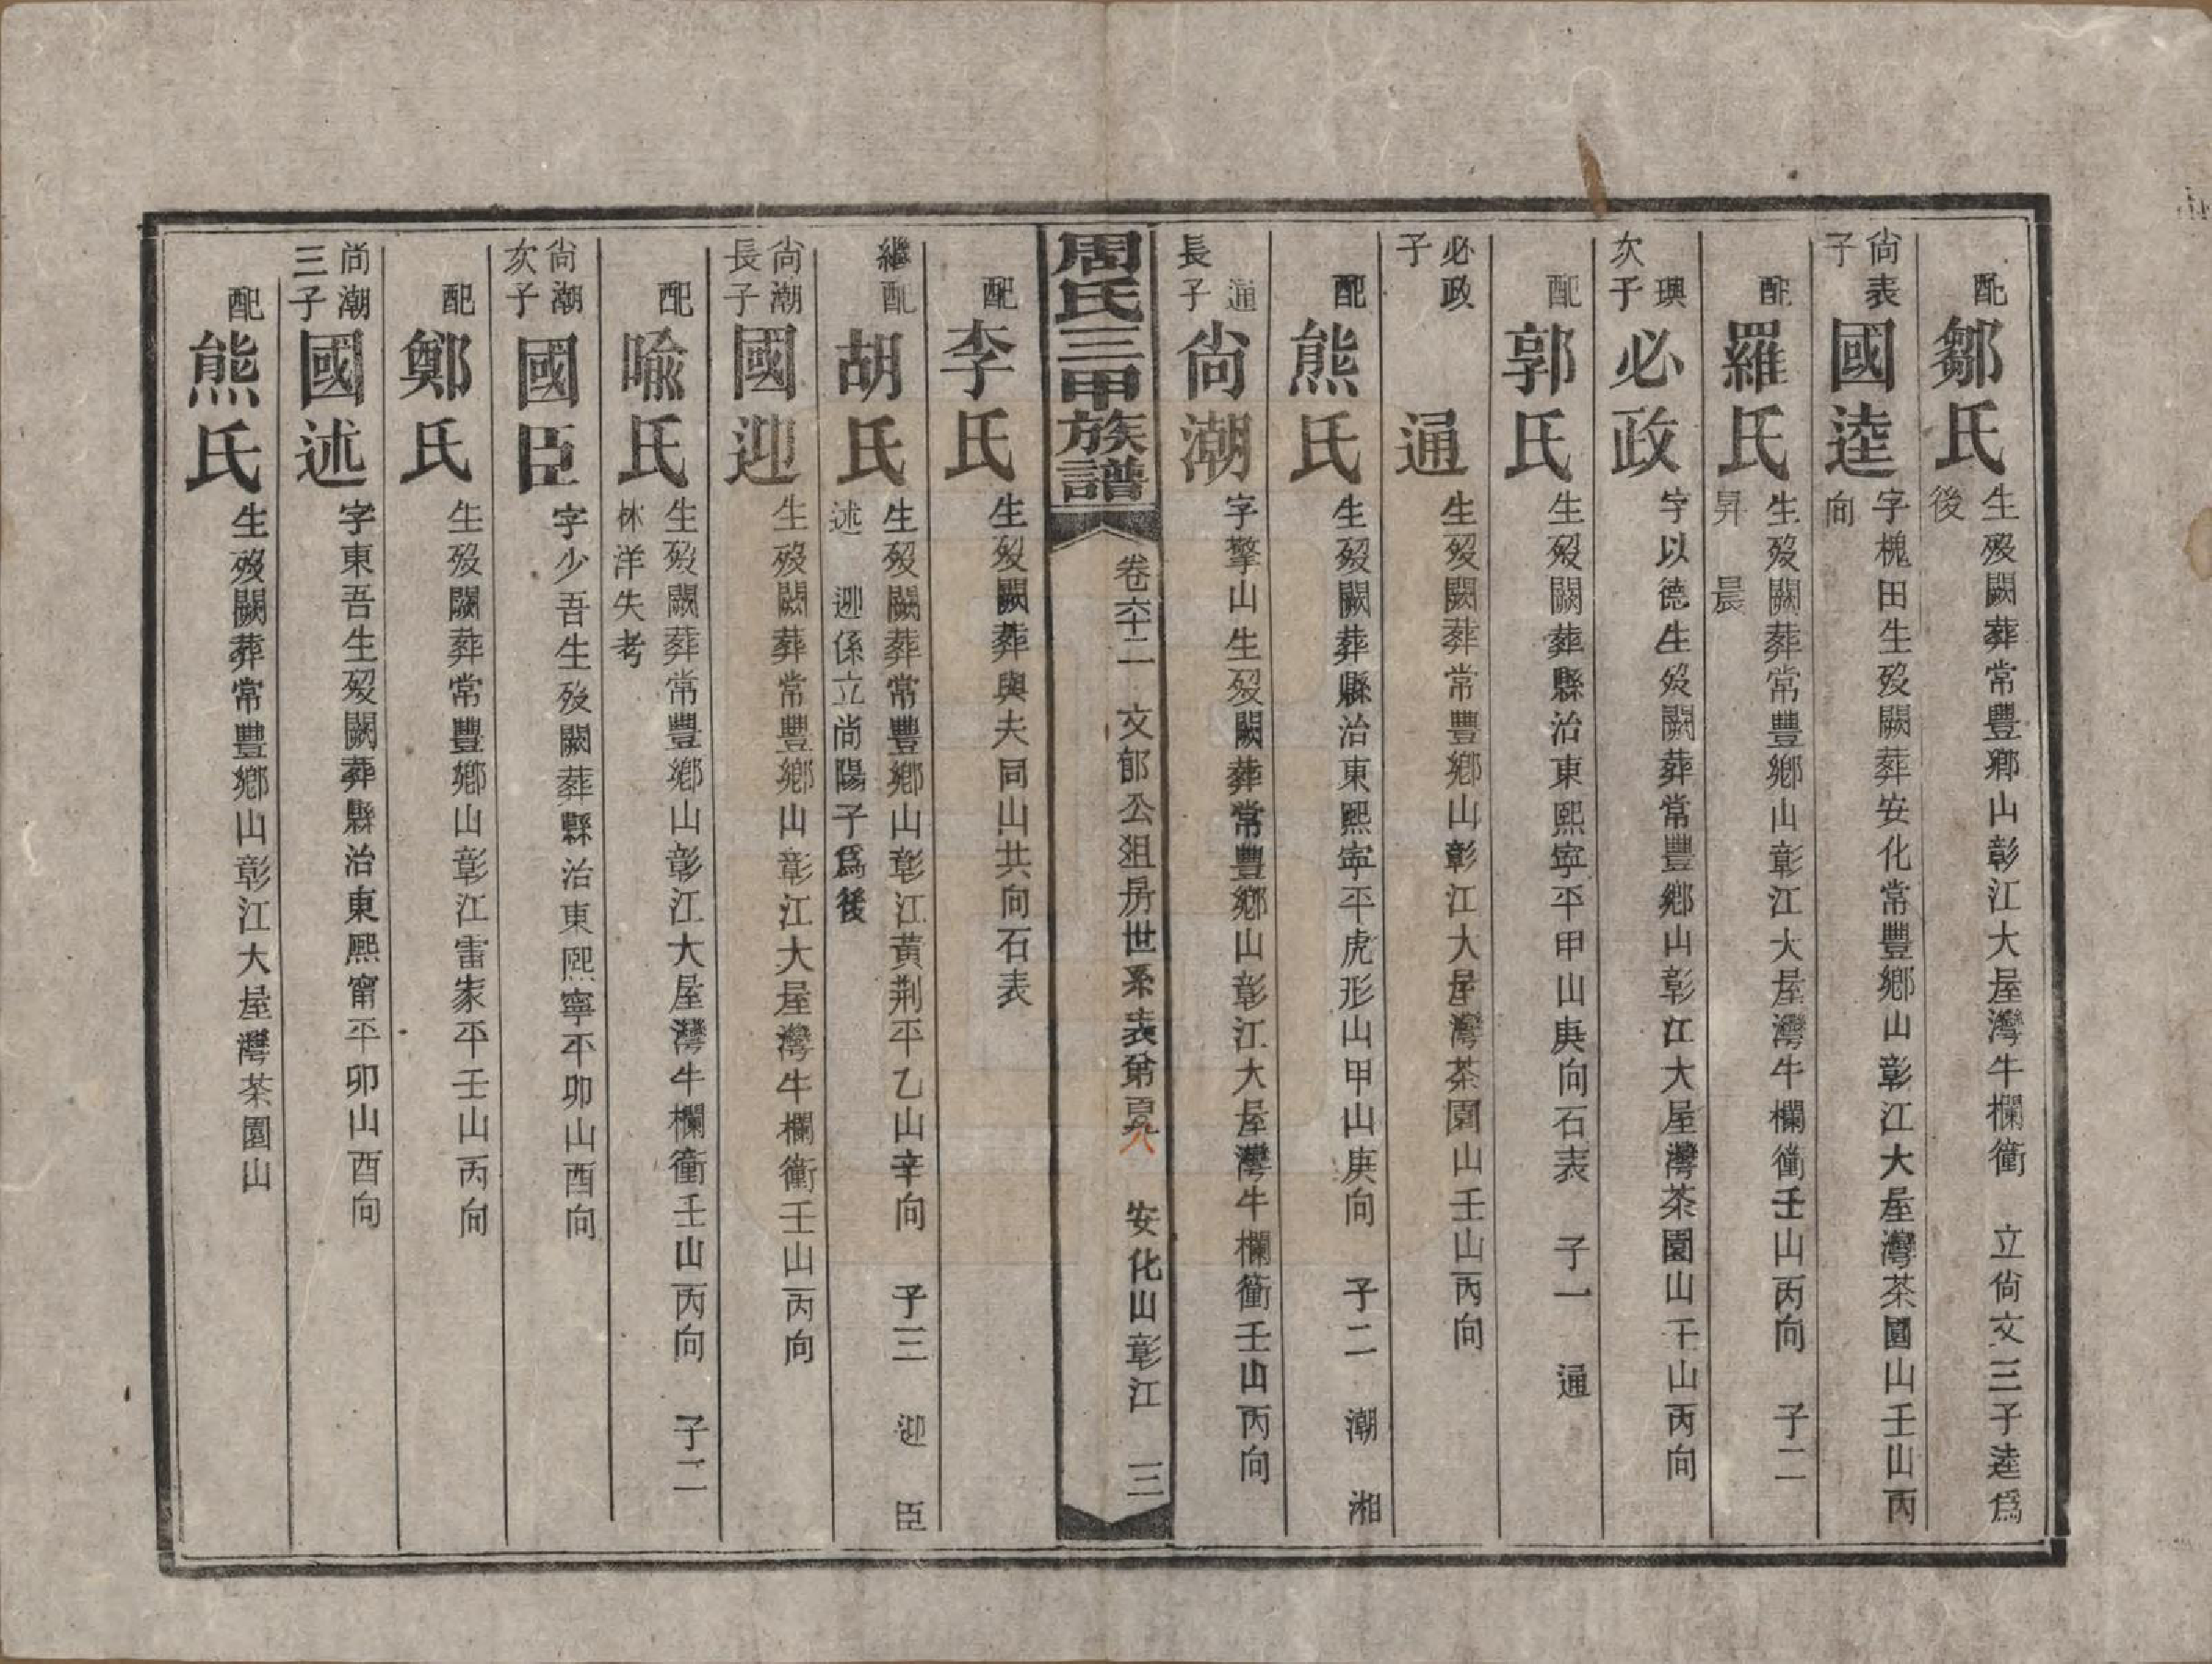 配鄒氏生歿闕葬常豐鄉山彰江大屋灣牛欄衝 立尙文三子逵爲
後
尙表子國逵字槐田生歿闕葬安化常豐鄉山彰江大屋灣茶園山壬山丙
向
配羅氏生歿闕葬常豐鄉山彰江大屋灣牛欄衝壬山丙向 子二
昇 晨
璵次子必政字以德生歿闕葬常豐鄉山彰江大屋灣茶園山壬山丙向
配郭氏生歿闕葬縣治東熙寧平甲山庚向石表 子一 通
必政子通生歿闕葬常豐鄉山彰江大屋灣茶園山壬山丙向
配熊氏生歿闕葬縣治東熙寧平虎形山甲山庚向 子二 潮 湘
通長子尙潮字擎山生歿闕葬常豐鄉山彰江大屋灣牛欄衝壬山丙向
周氏三甲族譜 卷六十二 文郁公祖房世系表第 安化山彰江 三
配李氏生歿闕葬與夫同山共向石表
繼配胡氏生歿闕葬常豐鄉山彰江黃荆平乙山辛向 子三 迎 臣
述 迎係立尚陽子爲後
尙潮長子國迎生歿闕葬常豐鄉山彰江大屋灣牛欄衝壬山丙向
配喩氏生歿闕葬常豐鄉山彰江大屋灣牛欄衝壬山丙向 子二
林洋失考
尙潮次子國臣字少吾生歿闕葬縣治東熙寧平卯山酉向
配鄭氏生歿闕葬常豐鄉山彰江雷家平壬山丙向
尚潮三子國述字東吾生歿闕葬縣治東熙甯平卯山酉向
配熊氏生歿闕葬常豐鄉山彰江大屋灣茶園山